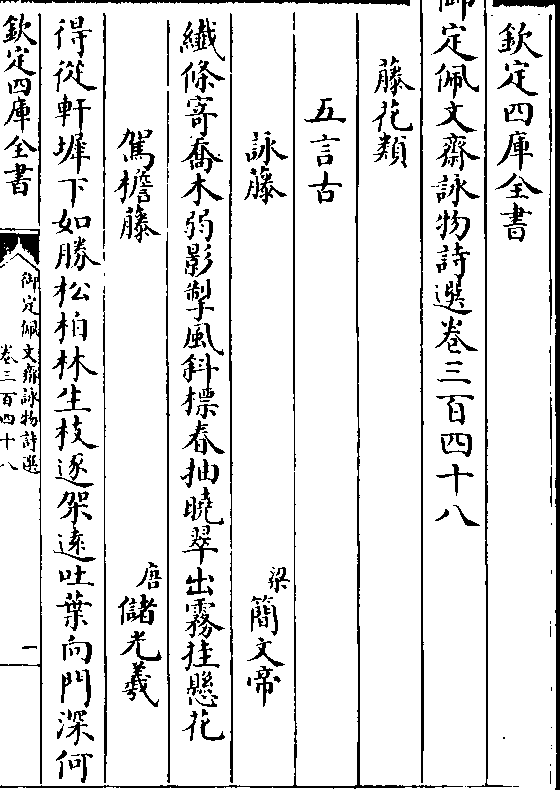 欽定四庫全書
御定佩文齋詠物詩選卷三百四十八
藤花類
五言古
詠藤　梁簡文帝
纖條寄喬木弱影掣風斜標春抽曉翠出霧挂懸花
駕檐藤　唐儲光羲
得從軒墀下如勝松柏林生枝逐架遠吐葉向門深何
欽定四庫全書
御定佩文齋詠物詩選
卷三百四十八
一